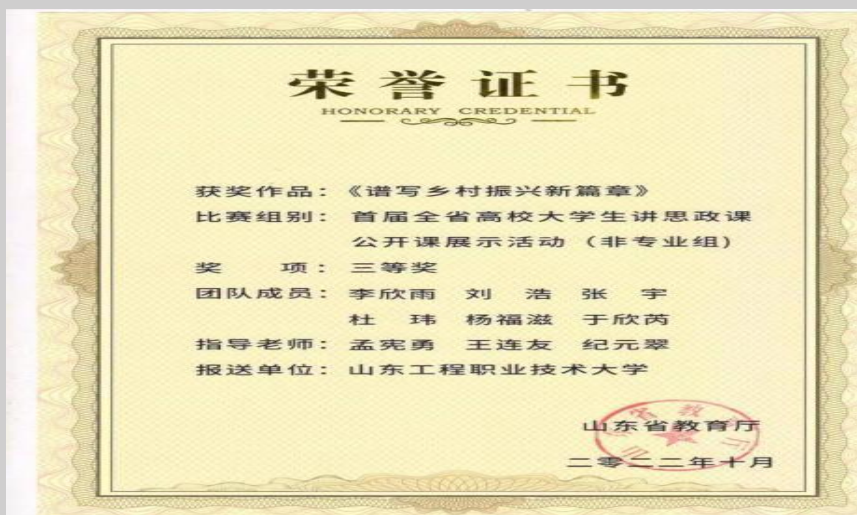 荣誉证书
HONORARY CREDENTIAL
获奖作品：《谱写乡村振兴新篇章》
比赛组别：首届全省高校大学生讲思政课
公开课展示活动（非专业组）
奖 项：三等奖
团队成员：李欣雨 刘 浩 张 宇
杜 玮 杨福滋 于欣芮
指导老师：孟宪勇 王连友 纪元翠
报送单位：山东工程职业技术大学
山东省教育厅
二零二二年十月